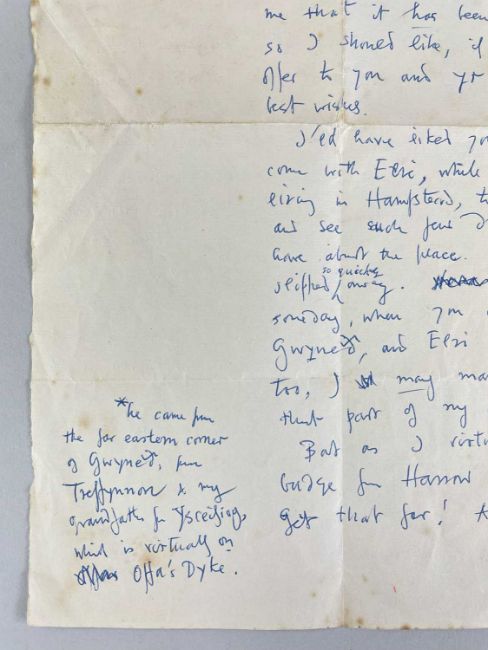 me that it has been
so I should like, if
offer to you and yr
best wishes.
I'ld have liked yo
come with Elri, while
living in Hampstead, t
and see such few d
have about the place.
slipped so quickly away.
someday, when you
Gwynedd, and Elri
too, I may ma
that part of my
But as I virtu
budge from Harrow
get that far!
*he came from
the far eastern corner
of Gwynedd, from
Treffynnon & my
grandfather from Ysceifiog,
which is virtually on
Offa's Dyke.